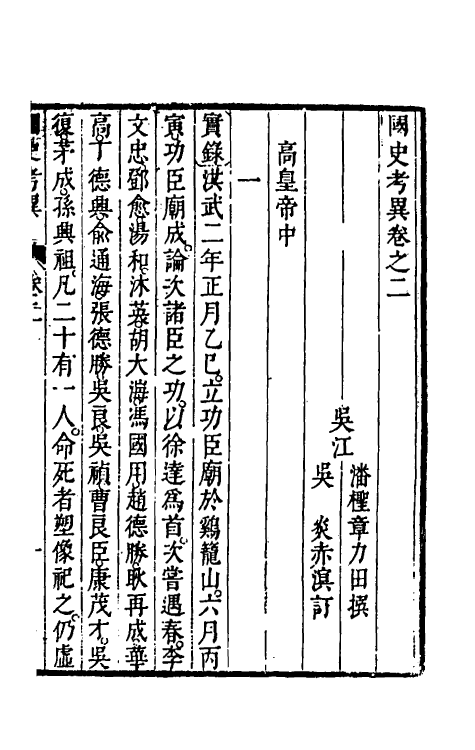 國史考異卷之二
吳江
潘檉章力田撰
吳 炎赤溟訂
高皇帝中
一
實錄洪武二年正月乙巳。立功臣廟於鷄籠山。六月丙
寅。功臣廟成。論次諸臣之功。以徐達爲首。次常遇春。李
文忠。鄧愈。湯和。沐英。胡大海。馮國用。趙德勝。耿再成。華
高。丁德興。俞通海。張德勝。吳良。吳禎。曹良臣。康茂才。吳
復。茅成。孫興祖。凡二十有一人。命死者塑像祀之。仍虛